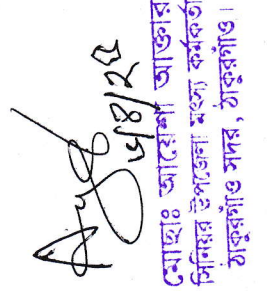 মোছাঃ আয়েশা আক্তার
সিনিয়র উপজেলা মৎস্য কর্মকর্তা
ঠাকুরগাঁও সদর, ঠাকুরগাঁও।